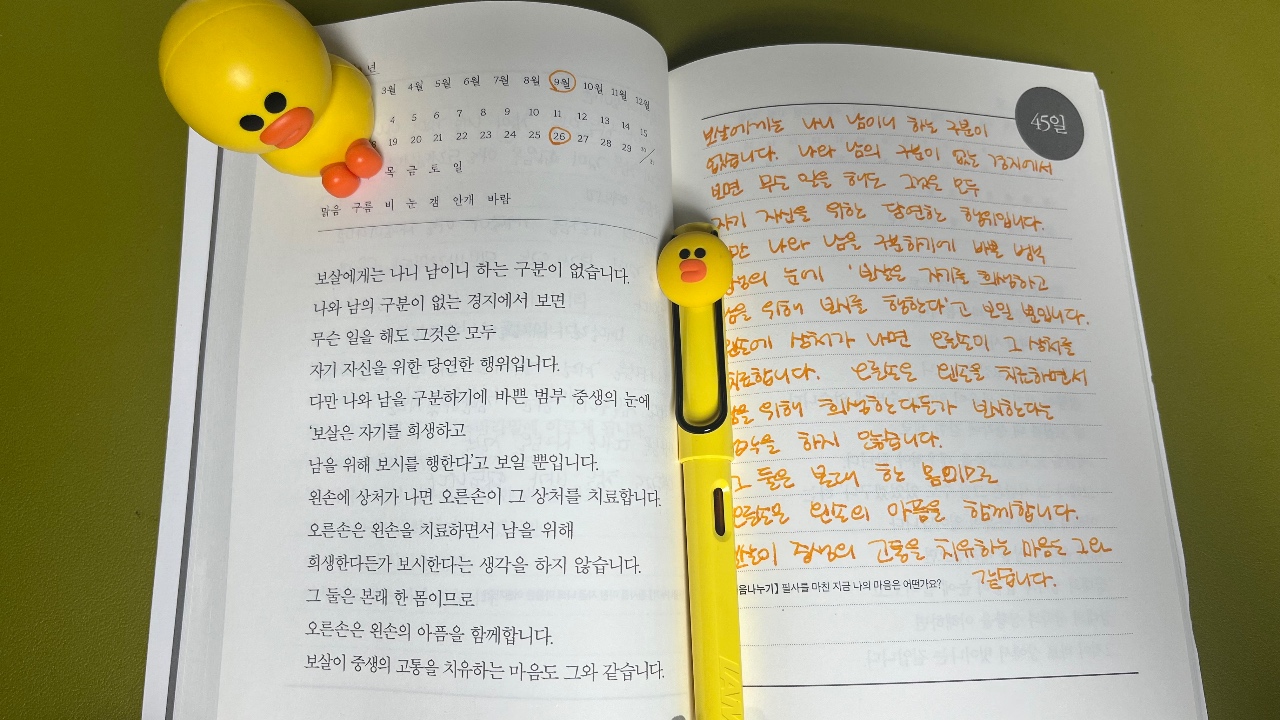 년
3월 4월 5월 6월 7월 8월 9월 10월 11월 12월
4 5 6 7 8 9 10 11 12 13 14 15
19 20 21 22 23 24 25 26 27 28 29 30/31
목 금 토 일
맑음 구름 비 눈 갬 안개 바람
보살에게는 나니 남이니 하는 구분이 없습니다.
나와 남의 구분이 없는 경지에서 보면
무슨 일을 해도 그것은 모두
자기 자신을 위한 당연한 행위입니다.
다만 나와 남을 구분하기에 바쁜 범부 중생의 눈에
‘보살은 자기를 희생하고
남을 위해 보시를 행한다’고 보일 뿐입니다.
왼손에 상처가 나면 오른손이 그 상처를 치료합니다.
오른손은 왼손을 치료하면서 남을 위해
희생한다든가 보시한다는 생각을 하지 않습니다.
그 둘은 본래 한 몸이므로
오른손은 왼손의 아픔을 함께합니다.
보살이 중생의 고통을 치유하는 마음도 그와 같습니다.
45일
보살에게는 나니 남이니 하는 구분이
없습니다. 나와 남의 구분이 없는 경지에서
보면 무슨 일을 해도 그것은 모두
자기 자신을 위한 당연한 행위입니다.
만 나와 남을 구분하기에 바쁜 범부
중생의 눈에 '보살은 자기를 희생하고
남을 위해 보시를 행한다'고 보일 뿐입니다.
왼손에 상처가 나면 오른손이 그 상처를
치료합니다. 오른손은 왼손을 치료하면서
남을 위해 희생한다든가 보시한다는
생각을 하지 않습니다.
그 둘은 본래 한 몸이므로
오른손은 왼손의 아픔을 함께합니다.
보살이 중생의 고통을 치유하는 마음도 그와
같습니다.
음나누기】 필사를 마친 지금 나의 마음은 어떤가요?
LAMY